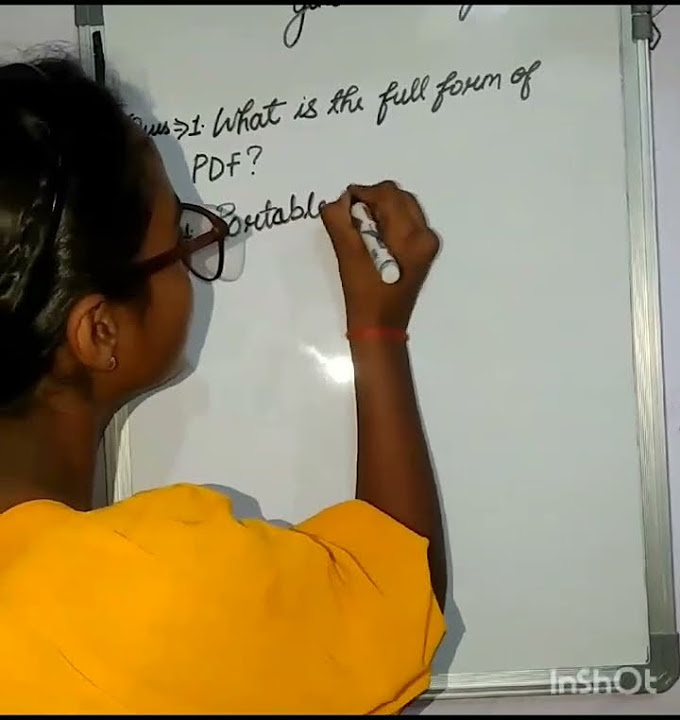 Ques⇒1. What is the full form of
PDF?
Portable
InShOt